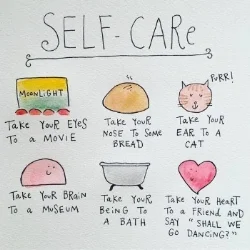 SELF-CARe
MOONLiGHT
PURR!
TAKE YOUR EYES
TO A MOVIE
TAKE YOUR
NOSE TO SOME
BREAD
TAKE YOUR
EAR TO A
CAT
TAKE YOUR BRAIN
TO A MUSEUM
TAKE YOUR
BEING TO
A BATH
TAKE YOUR HEART
TO A FRIEND AND
SAY "SHALL WE
GO DANCING?"